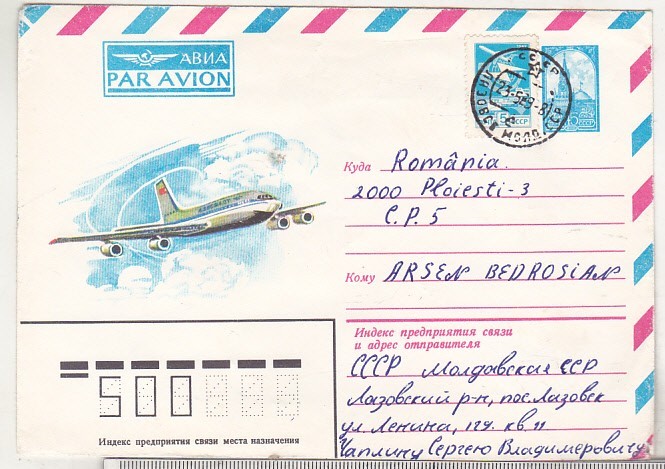 АВИА
PAR AVION
5
СССР
МОЛД ССР
Куда România.
2000 Ploiesti-3
C.P. 5
Кому ARSEN BEDROSIAN
Индекс предприятия связи
и адрес отправителя
СССР Молдавская ССР
Лазовский р-н, пос Лазовск
ул. Ленина, 179. кв. 11
Чаплину Сергею Владимировичу
500
Индекс предприятия связи места назначения